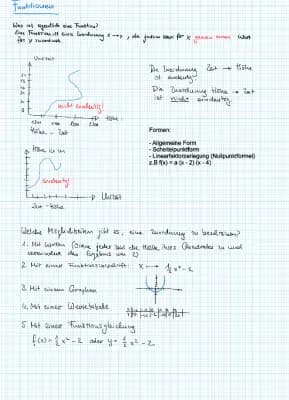 Funktionen
Was ist eigentlich eine Funktion?
Eine Funktion ist eine Zuordnung x → y, die jedem Wert für x genau einen Wert
für y zuordnet.
Uhrzeit
nicht eindeutig!
Höhe
Höhe - Zeit
Die Zuordnung Zeit → Höhe
ist eindeutig
Die Zuordnung Höhe → Zeit
ist nicht eindeutig
Höhe in m
eindeutig!
Uhrzeit
Zeit - Höhe
Formen:
- Allgemeine Form
- Scheitelpunktform
- Linearfaktorzerlegung (Nullpunktformel)
z.B f(x) = a (x - 2) (x - 4)
Welche Möglichkeiten gibt es, eine Zuordnung zu beschreiben?
1. Mit Worten (Ordne jeder Zahl die Hälfte ihres Quadrates zu und
vermindert das Ergebnis um 2)
2. Mit einer Funktionsvorschrift x → 1/2 x² - 2
3. Mit einem Graphen
4. Mit einer Wertetabelle
5. Mit einer Funktionsgleichung
f(x) = 1/2 x² - 2 oder y = 1/2 x² - 2